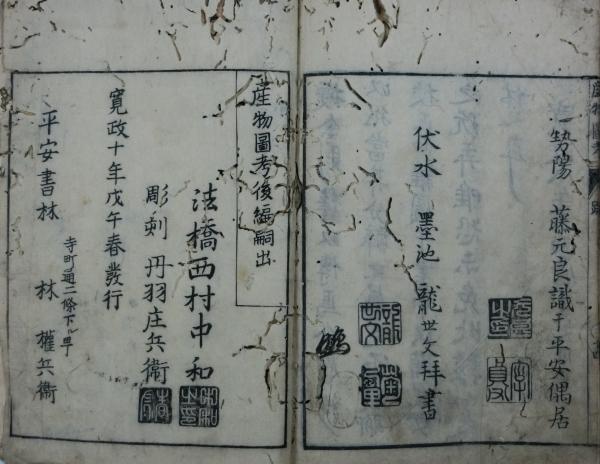 勢陽 藤元良識于平安偶居
伏水 墨池 龍世文拜書
産物圖考後編嗣出
法橋西村中和
彫刻 丹羽庄兵衛
寛政十年戊午春發行
寺町通二條下ル町
平安書林 林 權兵衛